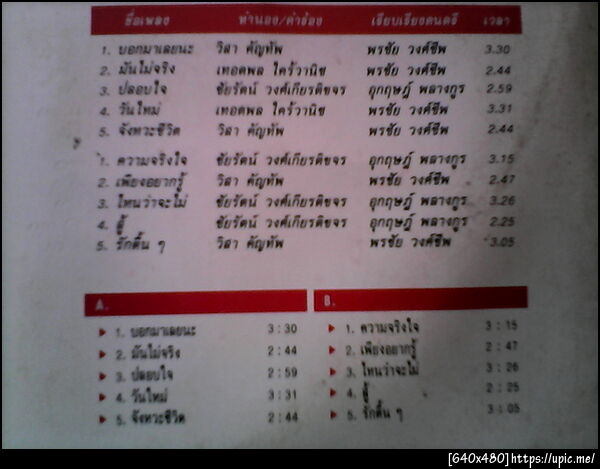 ชื่อเพลง ทำนอง/คำร้อง เรียบเรียงดนตรี เวลา
1. บอกมาเลยนะ วิสา คัญทัพ พรชัย วงศ์ชีพ 3.30
2. มันไม่จริง เทอดพล ไคร้วานิช พรชัย วงศ์ชีพ 2.44
3. ปลอบใจ ชัยรัตน์ วงศ์เกียรติขจร อุกฤษฎ์ พลางกูร 2.59
4. วันใหม่ เทอดพล ไคร้วานิช พรชัย วงศ์ชีพ 3.31
5. จังหวะชีวิต วิสา คัญทัพ พรชัย วงศ์ชีพ 2.44
1. ความจริงใจ ชัยรัตน์ วงศ์เกียรติขจร อุกฤษฎ์ พลางกูร 3.15
2. เพียงอยากรู้ วิสา คัญทัพ พรชัย วงศ์ชีพ 2.47
3. ไหนว่าจะไม่ ชัยรัตน์ วงศ์เกียรติขจร อุกฤษฎ์ พลางกูร 3.26
4. สู้ ชัยรัตน์ วงศ์เกียรติขจร อุกฤษฎ์ พลางกูร 2.25
5. รักตื้น ๆ วิสา คัญทัพ พรชัย วงศ์ชีพ 3.05
A.
1. บอกมาเลยนะ 3 : 30
2. มันไม่จริง 2 : 44
3. ปลอบใจ 2 : 59
4. วันใหม่ 3 : 31
5. จังหวะชีวิต 2 : 44
B.
1. ความจริงใจ 3 : 15
2. เพียงอยากรู้ 2 : 47
3. ไหนว่าจะไม่ 3 : 26
4. สู้ 2 : 25
5. รักตื้น ๆ 3 : 05
[640x480]https://upic.me/